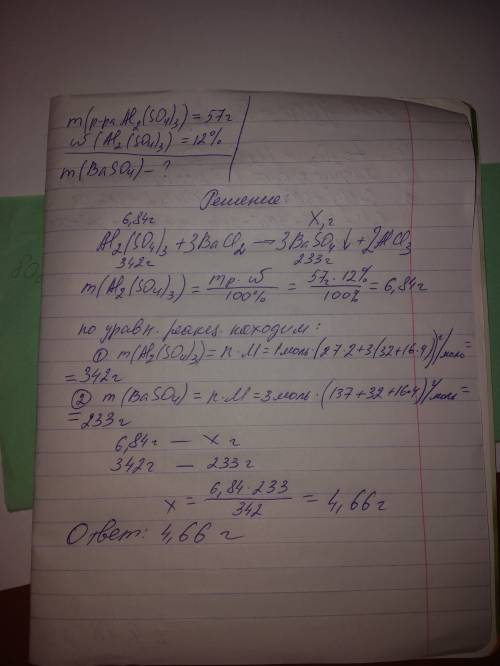 m(р-ра Al₂(SO₄)₃) = 57г
ω(Al₂(SO₄)₃) = 12%
m(BaSO₄) – ?
Решение:
6,84г X,г
Al₂(SO₄)₃ + 3BaCl₂ → 3BaSO₄↓ + 2AlCl₃
342г 233г
m(Al₂(SO₄)₃) = mр. ω / 100% = 57г · 12% / 100% = 6,84г
по уравн. реакц. находим:
① m(Al₂(SO₄)₃) = n · M = 1моль · (27·2+3(32+16·4)) г/моль =
= 342г
② m(BaSO₄) = n · M = 3моль · (137+32+16·4) г/моль =
= 233г
6,84г — x г
342г — 233г
x = 6,84 · 233 / 342 = 4,66г
Ответ: 4,66 г